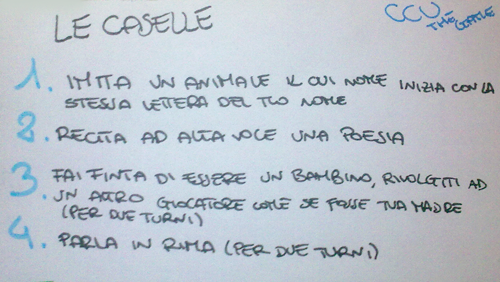 LE CASELLE
CCV
THE GAME
1. IMITA UN ANIMALE IL CUI NOME INIZIA CON LA
STESSA LETTERA DEL TUO NOME
2. RECITA AD ALTA VOCE UNA POESIA
3. FAI FINTA DI ESSERE UN BAMBINO, RIVOLGITI AD
UN ALTRO GIOCATORE COME SE FOSSE TUA MADRE
(PER DUE TURNI)
4. PARLA IN RIMA (PER DUE TURNI)